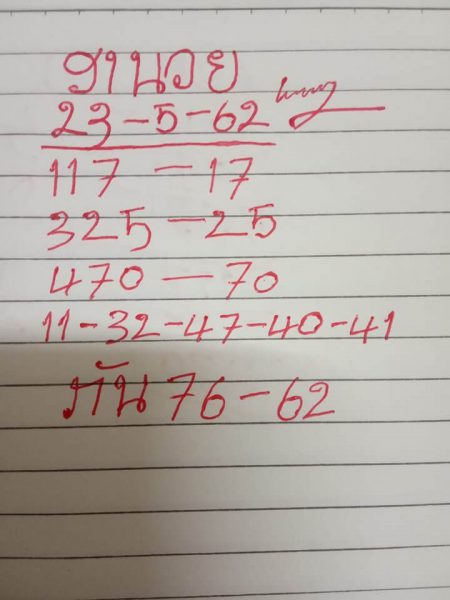 ฮานอย
23-5-62
117 - 17
325 - 25
470 - 70
11-32-47-40-41
กัน 76-62